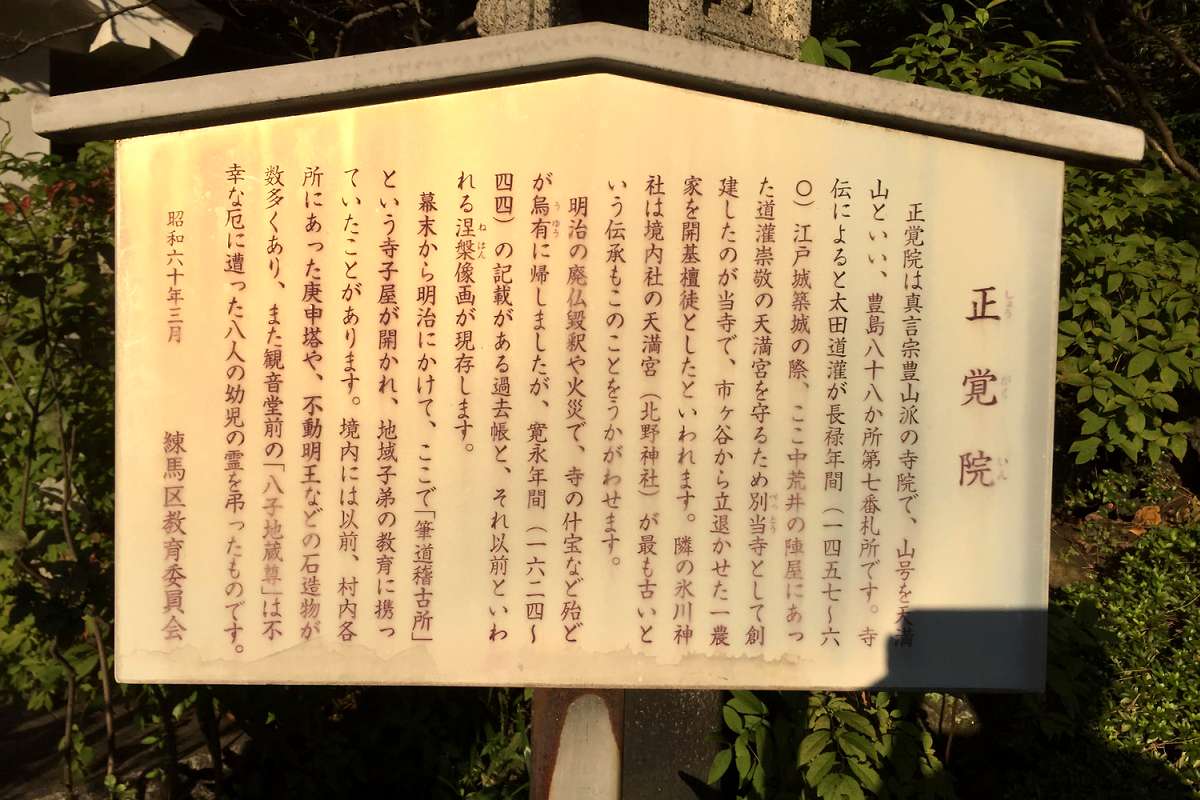 正覚院
しょうがくいん
正覚院は真言宗豊山派の寺院で、山号を天満
山といい、豊島八十八か所第七番札所です。寺
伝によると太田道灌が長禄年間（一四五七〜六
〇）江戸城築城の際、ここ中荒井の陣屋にあっ
た道灌崇敬の天満宮を守るため別当寺として創
べっとう
建したのが当寺で、市ヶ谷から立退かせた一農
家を開基檀徒としたといわれます。隣の氷川神
社は境内社の天満宮（北野神社）が最も古いと
いう伝承もこのことをうかがわせます。
明治の廃仏毀釈や火災で、寺の什宝など殆ど
が烏有に帰しましたが、寛永年間（一六二四〜
うゆう
四四）の記載がある過去帳と、それ以前といわ
れる涅槃像画が現存します。
ねはん
幕末から明治にかけて、ここで「筆道稽古所」
という寺子屋が開かれ、地域子弟の教育に携っ
ていたことがあります。境内には以前、村内各
所にあった庚申塔や、不動明王などの石造物が
数多くあり、また観音堂前の「八子地蔵尊」は不
幸な厄に遭った八人の幼児の霊を弔ったものです。
昭和六十年三月　練馬区教育委員会